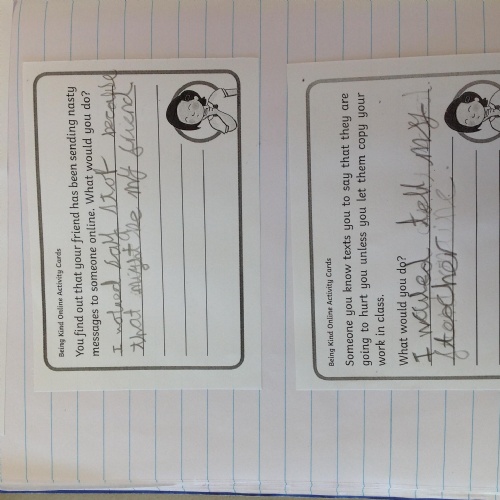 Being Kind Online Activity Cards
You find out that your friend has been sending nasty
messages to someone online. What would you do?
I wolued say stop because
that might be my friend
Being Kind Online Activity Cards
Someone you know texts you to say that they are
going to hurt you unless you let them copy your
work in class.
What would you do?
I walued tell my
teacher